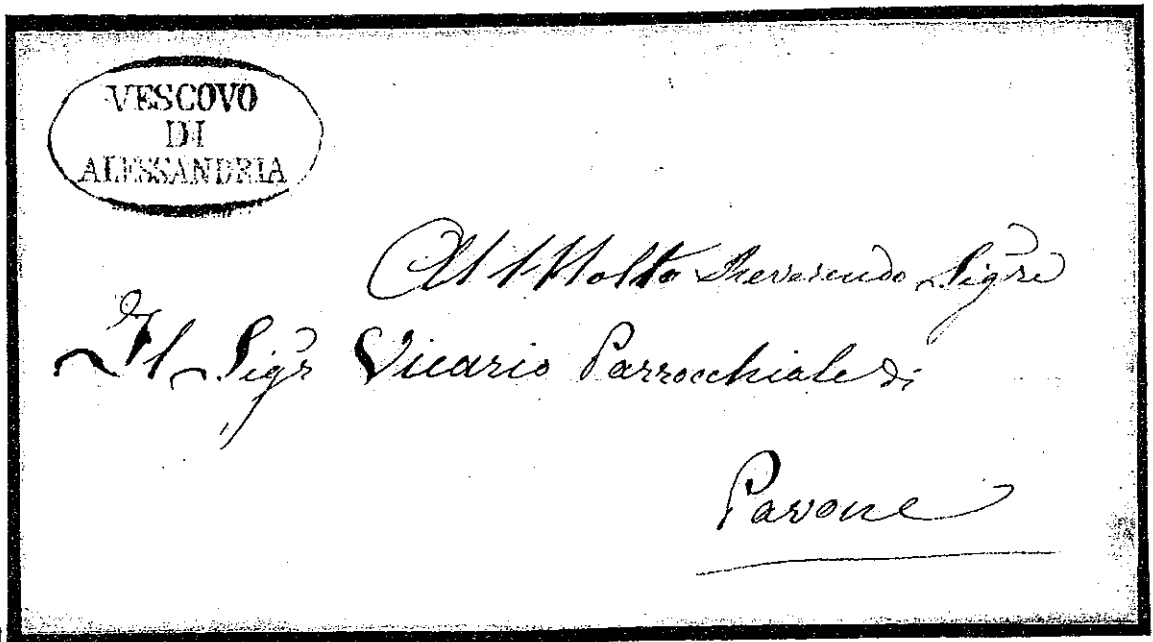 VESCOVO
DI
ALESSANDRIA
Al Molto Reverendo Sigre
Il Sigr Vicario Parrocchiale di
Pavone